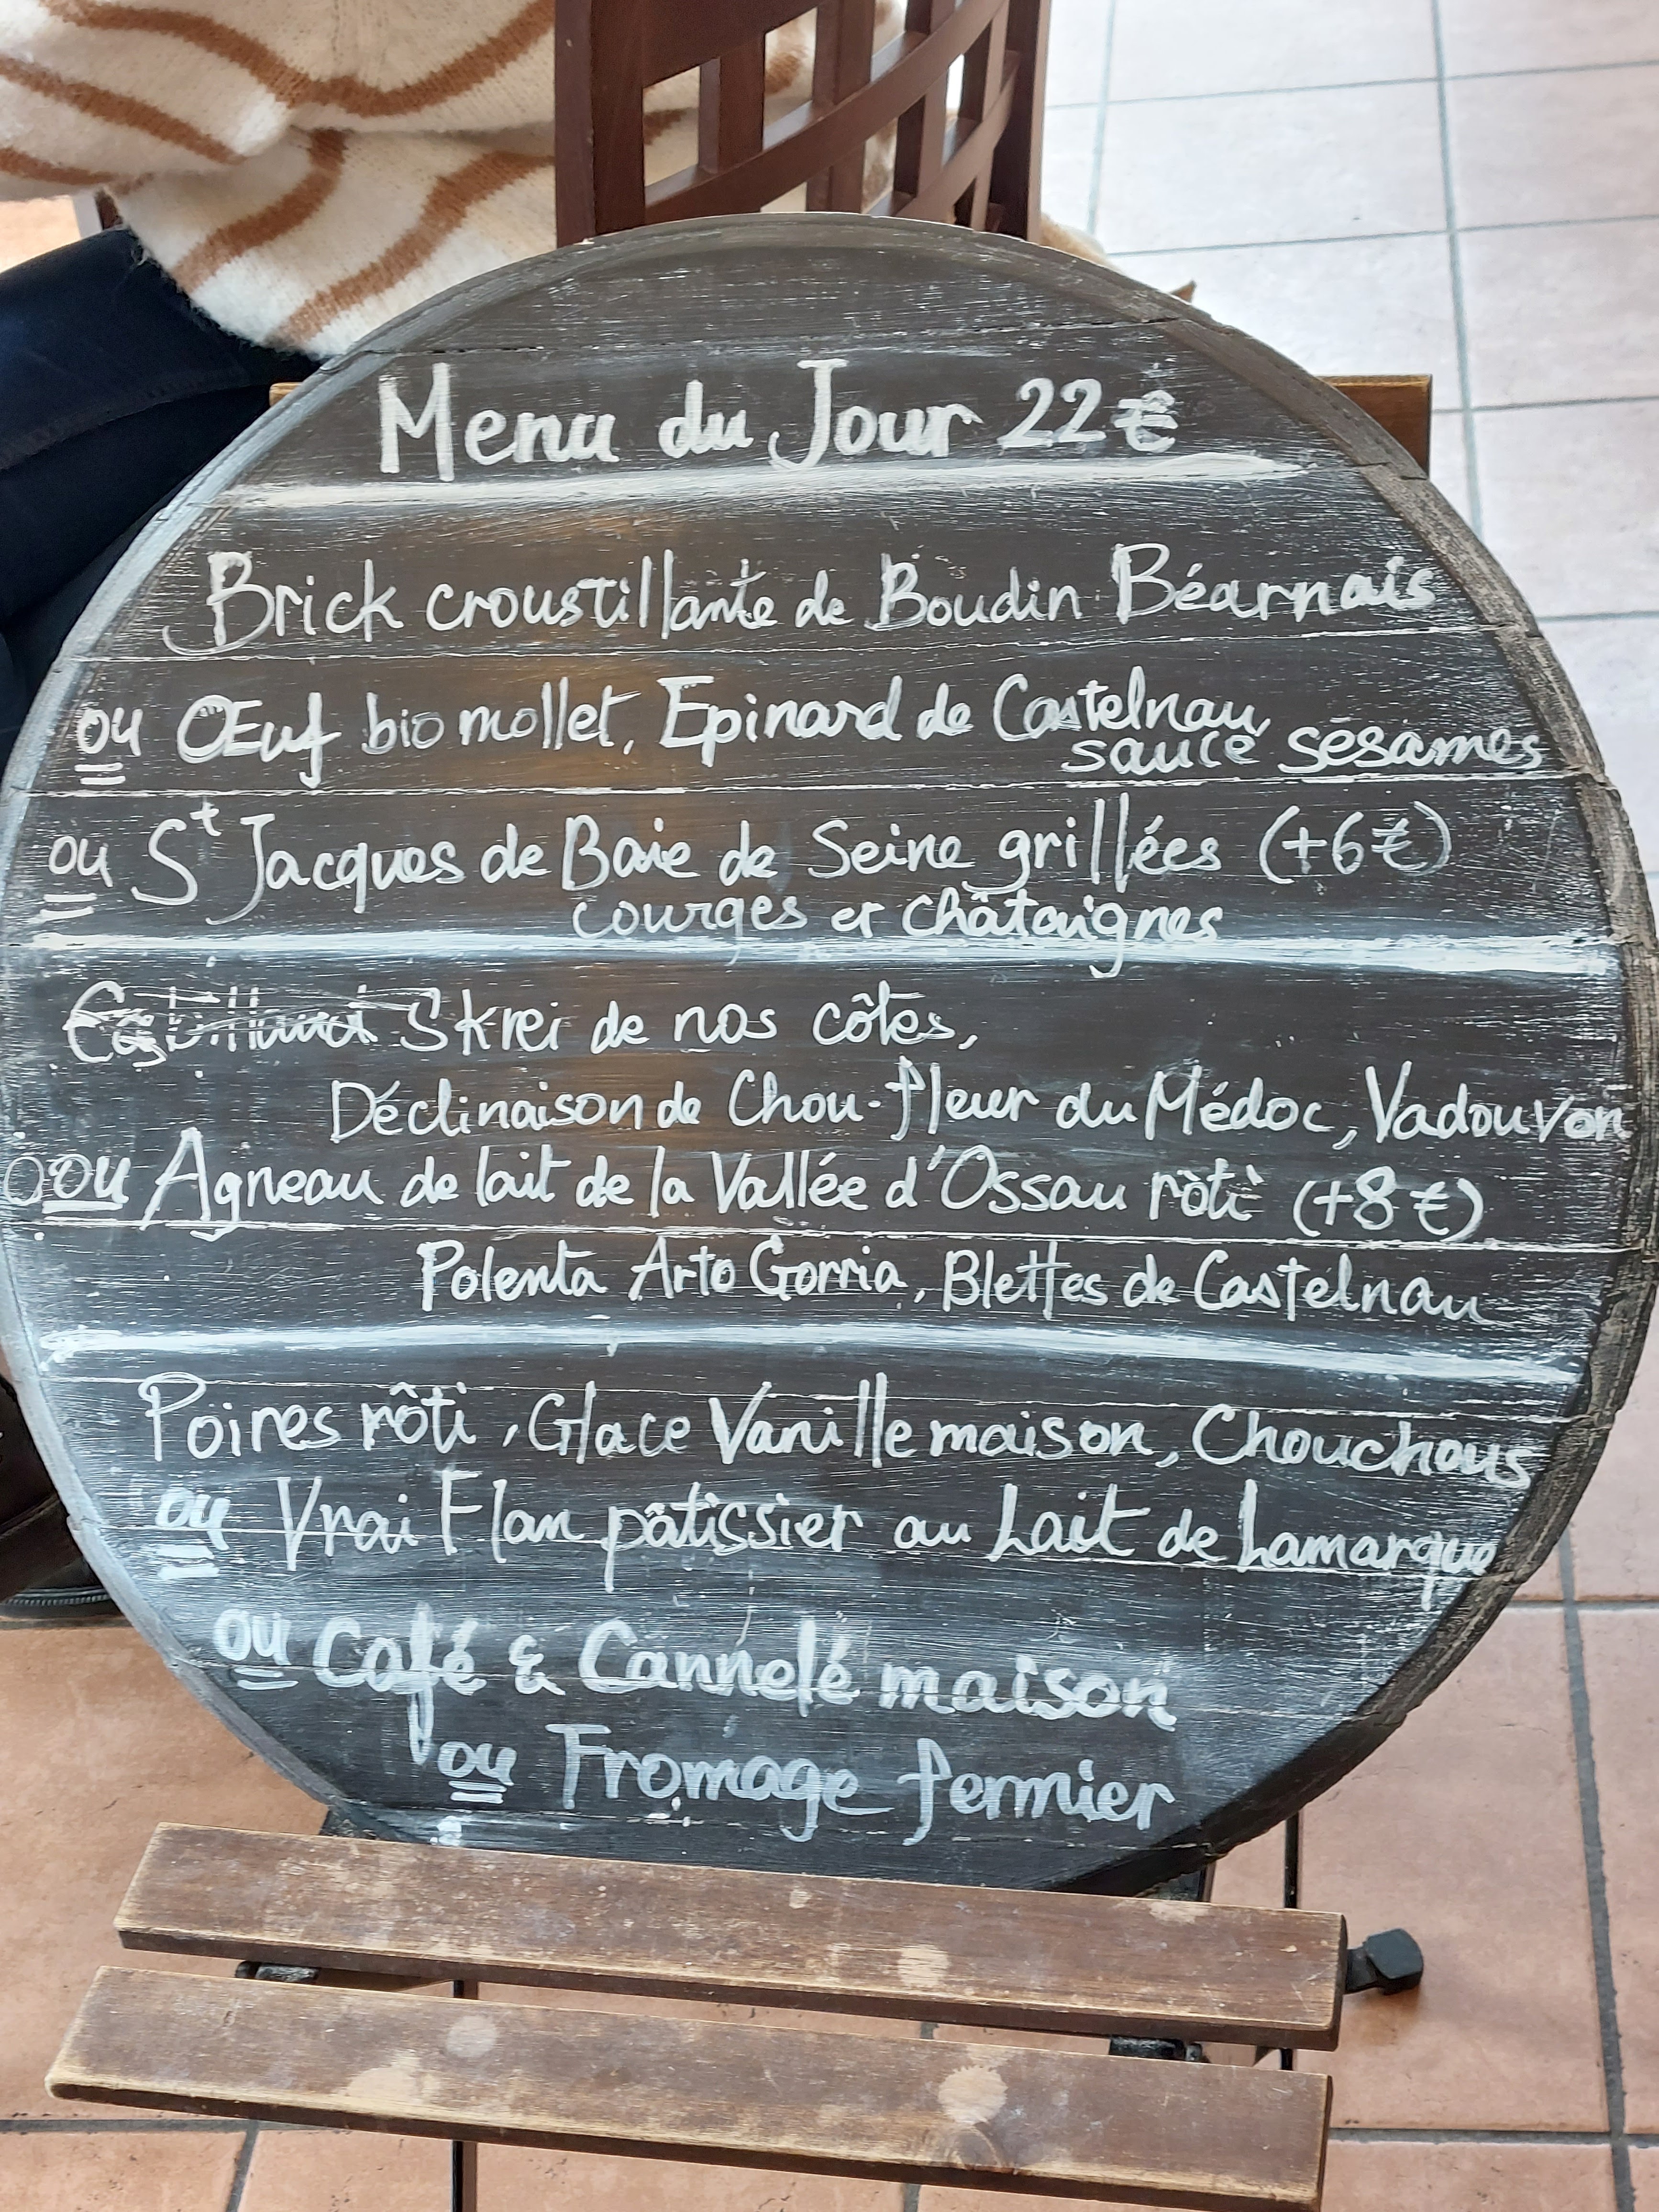 Menu du Jour 22€
Brick croustillante de Boudin Béarnais
ou Œuf bio mollet, Epinard de Castelnau,
sauce sésames
ou St Jacques de Baie de Seine grillées (+6€)
courges et châtaignes
Skrei de nos côtes,
Déclinaison de Chou-fleur du Médoc, Vadouvan
ou Agneau de lait de la Vallée d'Ossau rôti (+8€)
Polenta Arto Gorria, Blettes de Castelnau
Poires rôti, Glace Vanille maison, Chouchous
ou Vrai Flan pâtissier au Lait de Lamarque
ou Café & Cannelé maison
ou Fromage fermier